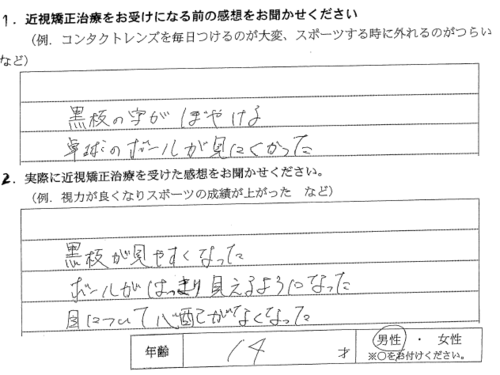 1. 近視矯正治療をお受けになる前の感想をお聞かせください
（例．コンタクトレンズを毎日つけるのが大変、スポーツする時に外れるのがつらい
など）
黒板の字がぼやける
卓球のボールが見にくかった
2. 実際に近視矯正治療を受けた感想をお聞かせください。
（例．視力が良くなりスポーツの成績が上がった　など）
黒板が見やすくなった
ボールがはっきり見えるようになった
目について心配がなくなった
年齢 14 才 男性 ・ 女性
※○をお付けください。